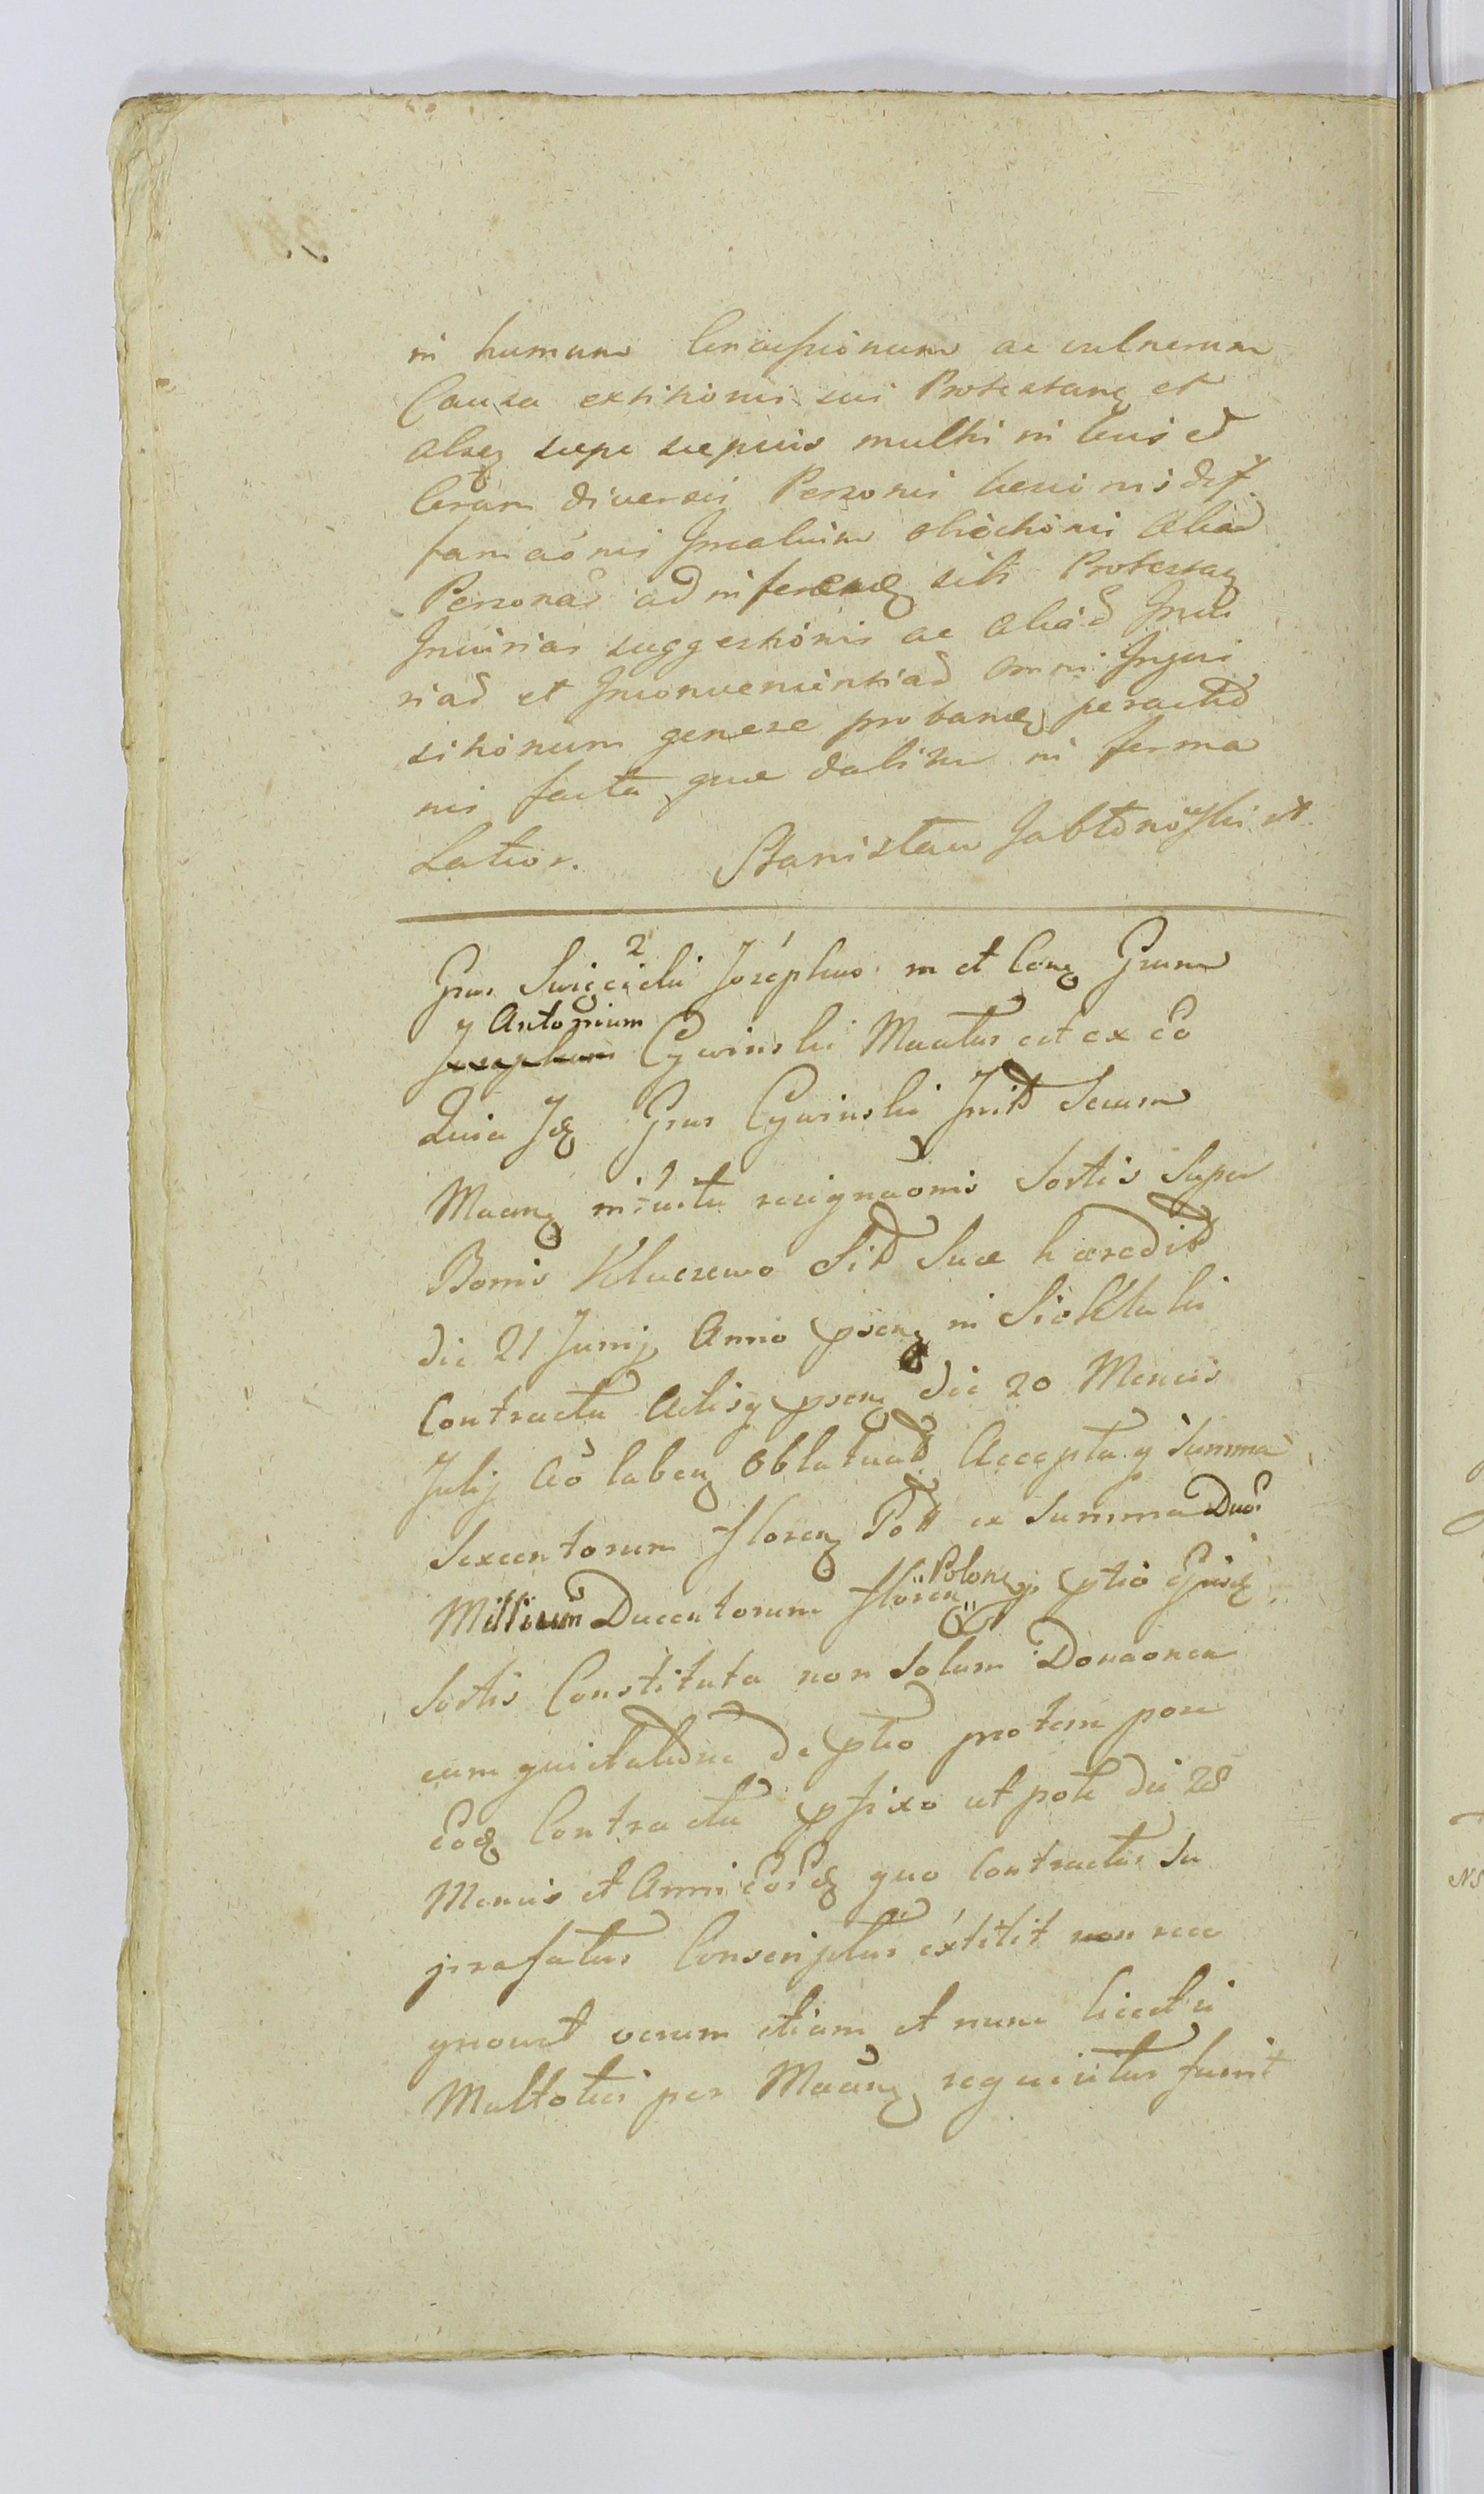 in humano Concussionum ac vulnerum
Causa extitionis sui Protestanq et
alias saepe saepius multis in locis et
Coram diversis Personis
famaõnis obiectionis aliaꝝ
Personaꝝ ad inferenđ sibi Protestanq
Iniurias suggestionis ac aliaꝝ Iniu
riaꝝ et Inconvenientiaꝝ omni Inqui
sitionum genere probanđ peractaꝝ
nis facta quae dabitur in forma
Latior. Stanisław Jabłonoski
Grus Swięcicki 2 Josephus m et Conq Grum
Antonium
Josephum Cywinski Maatus est ex Eo
Quia Idq Grus Cywinski Initꝝ Secum
Maanq resignaõnis Sortis Super
Bonis Kluczewo Sitꝝ Suae haereditꝝ
die 21 Junij Anno psenq in
Contractu Actisq psenq die 20 Mensis
Julij Aõ labenq Oblatuaꝝ Accepta q Summa
Sexcentorum florenq Poll ex Summa Duoꝝ
Millium Ducentorum florenq Polonq p ptio Ejusdq
Sortis Constituta non Solum Donaonem
cum quietatione de ptio pro tempore
Eodq Contractu pfixo utpote die 28
Mensis et Anni Eordq quo Contractus Su
prafatus Conscriptus extitit non reco
gnovit verum etiam et nunc licet is
Multoties per Maanq requisitus fuerit